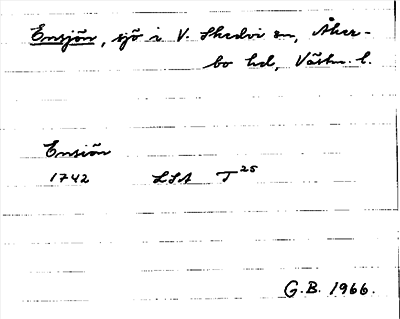 Ensjön, sjö i V. Skedvi sn, Åker-
bo hd, Västm. l.
Ensiön
1742 LSA T 25
G.B. 1966.